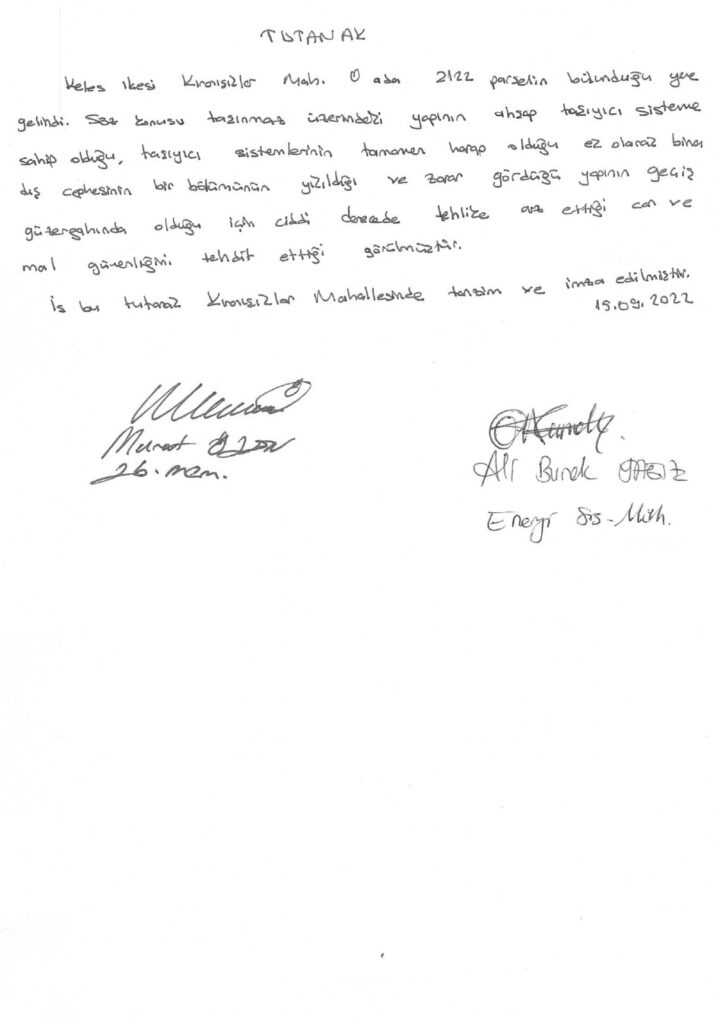 TUTANAK
Keles ilçesi Kıranışıklar Mah. 0 ada 2122 parselin bulunduğu yere
gelindi. Söz konusu taşınmaz üzerindeki yapının ahşap taşıyıcı sisteme
sahip olduğu, taşıyıcı sistemlerinin tamamen harap olduğu ek olarak bina
dış cephesinin bir bölümünün yıkıldığı ve zarar gördüğü yapının geçiş
güzergahında olduğu için ciddi derecede tehlike arz ettiği can ve
mal güvenliğini tehdit ettiği görülmüştür.
İş bu tutanak Kıranışıklar Mahallesinde tanzim ve imza edilmiştir.
15.09.2022
Murat
Ali Burak
Enerji Sis. Müh.